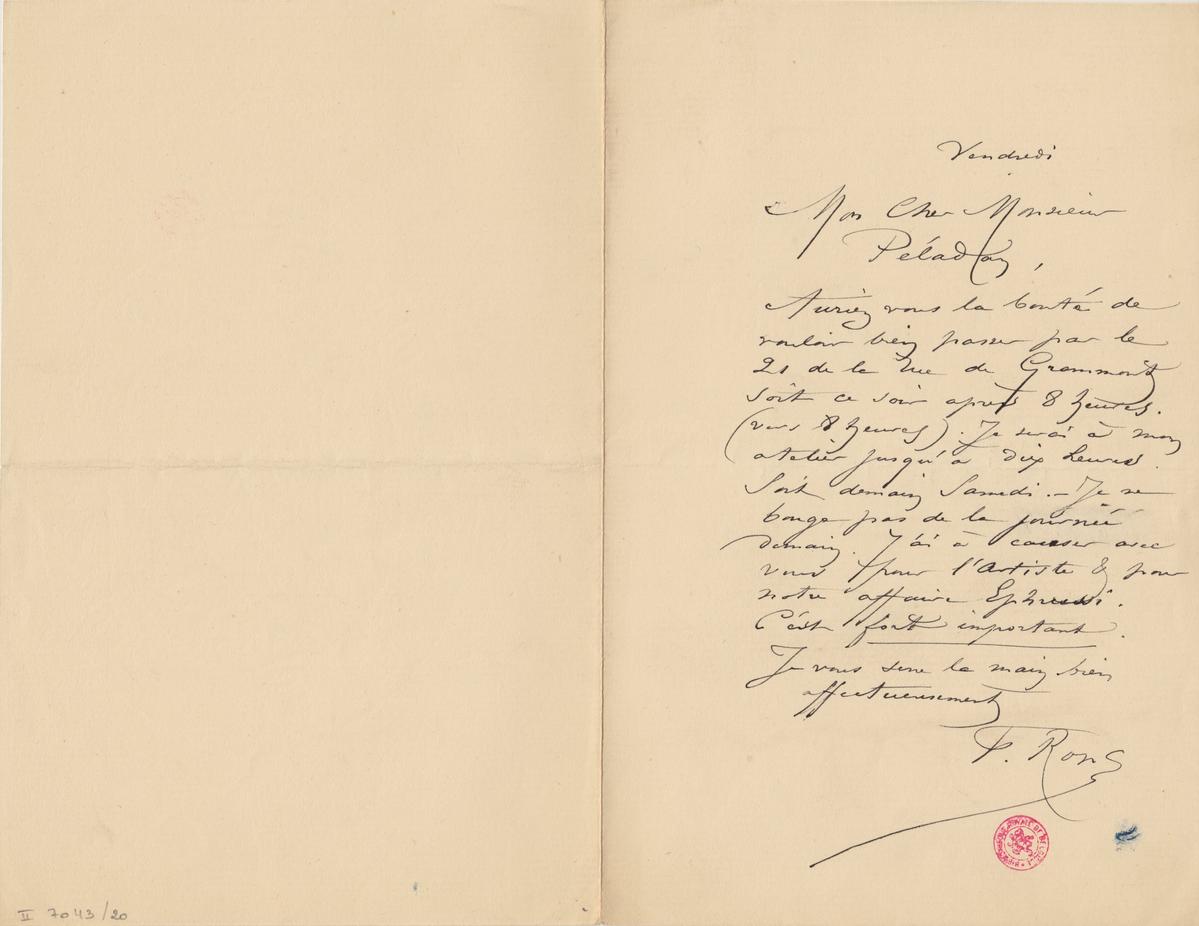 Vendredi
Mon Cher Monsieur
Péladan,
Auriez vous la bonté de
vouloir bien passer par le
21 de la rue de Grammont
soit ce soir après 8 heures.
(vers 8 heures). Je serai à mon
atelier jusqu'à dix heures.
Soit demain Samedi. – Je ne
bouge pas de la journée
demain. J'ai à causer avec
vous pour l'Artiste & pour
notre affaire Ephrussi.
C'est fort important.
Je vous serre la main bien
affectueusement
F. Rops
II 7043/20